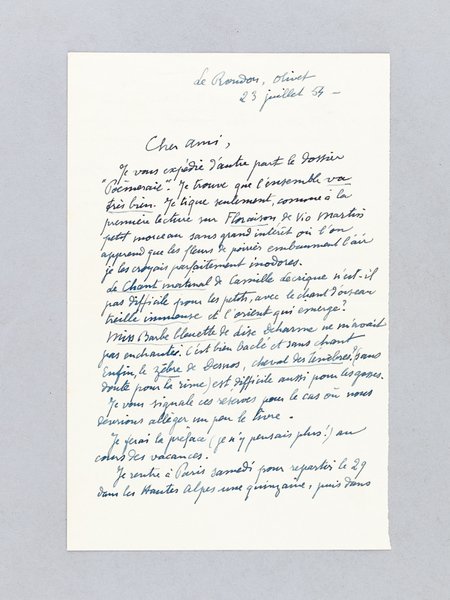 Le Rondon, Olivet
23 juillet 54 -
Cher ami,
Je vous expédie d'autre part le dossier
"Poèmeraie". Je trouve que l'ensemble va
très bien. Je tique seulement, comme à la
première lecture sur Floraison de Vio Martin
petit morceau sans grand intérêt où l'on
apprend que les fleurs de poirier embaument l'air
je les croyais parfaitement inodores.
Le Chant matinal de Camille Lecrique n'est-il
pas difficile pour les petits, avec le chant d'oiseau
treille immense et l'orient qui émerge?
Miss Barbe bleuette de Lise Deharme ne m'avait
pas enchantée. C'est bien bâclé et sans chant
Enfin, le Zèbre de Desnos, cheval des ténèbres, (sans
doute pour la rime) est difficile aussi pour les gosses.
Je vous signale ces réserves pour le cas où nous
devrions alléger un peu le livre.
Je ferai la préface (je n'y pensais plus!) au
cours des vacances.
Je rentre à Paris samedi pour repartir le 29
dans les Hautes Alpes une quinzaine, puis dans